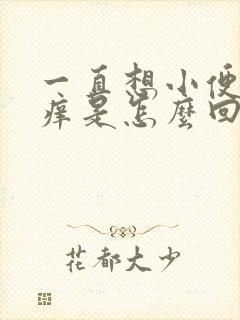 一直想小便
痒是怎麼回
花都大少